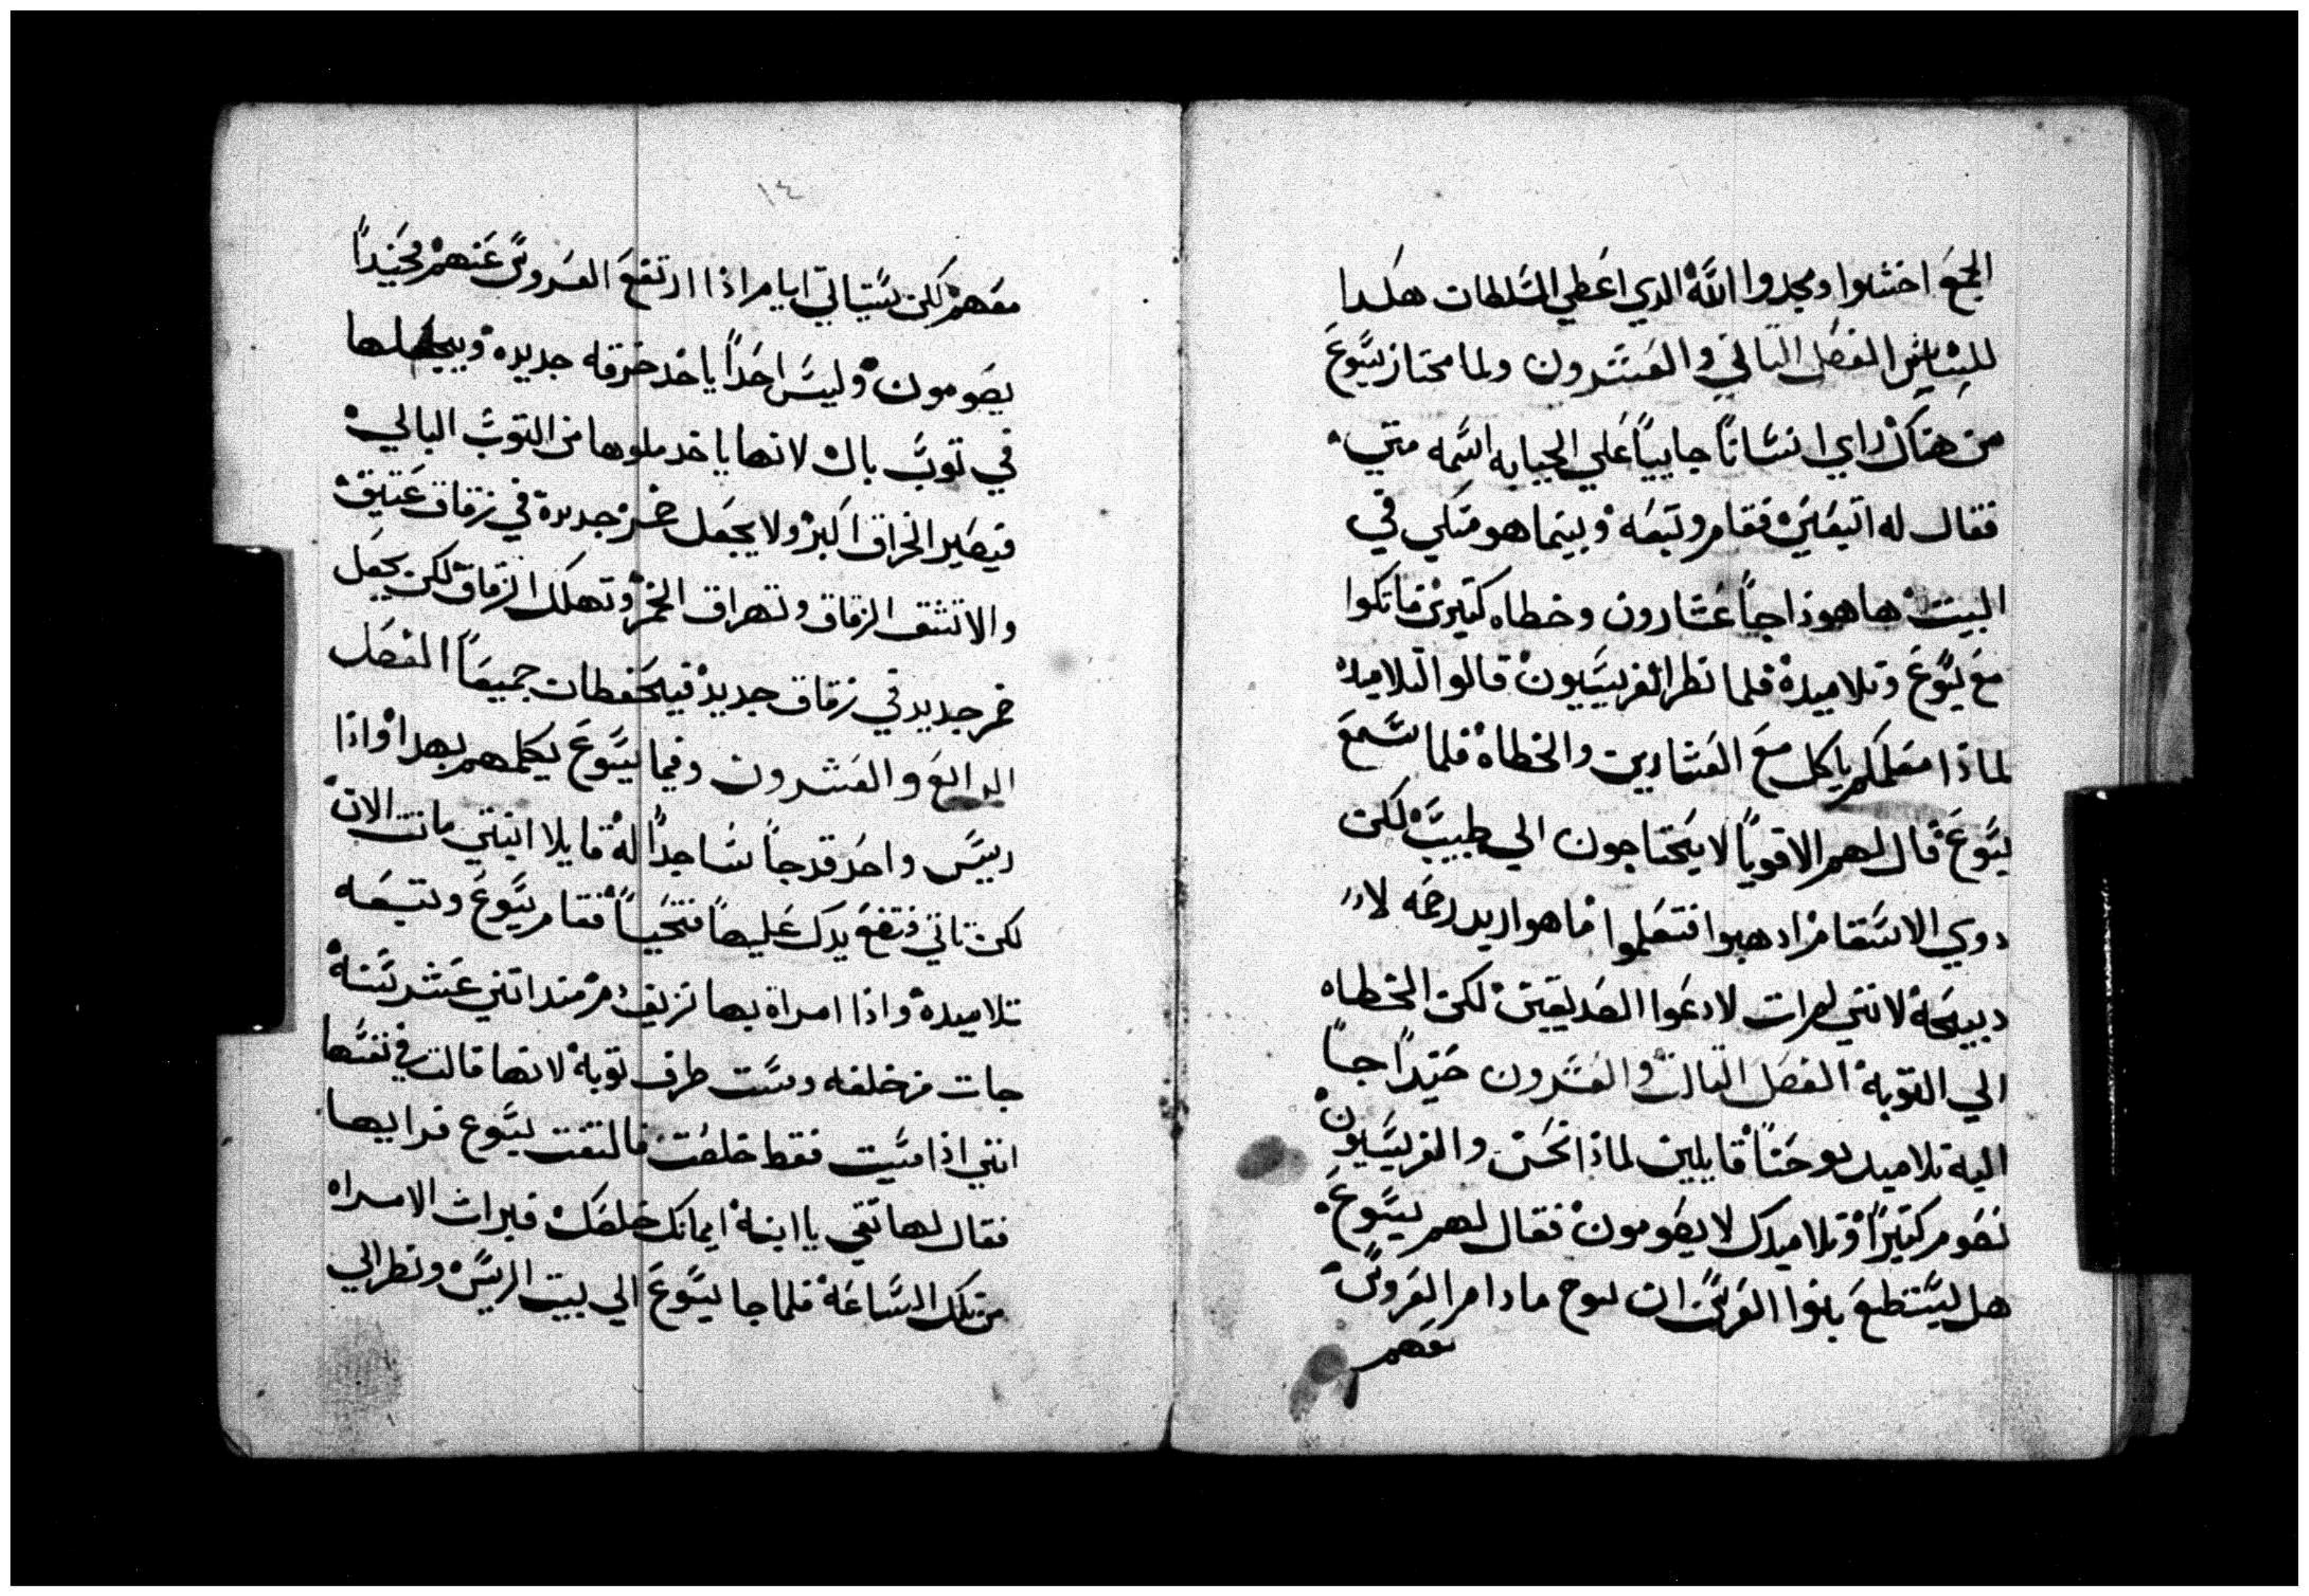 الجمع اختشوا ومجدوا الله الدي اعطي السلطات هكدا
للناس الفصل التاني والعشرون ولما محتاز يسوع
من هناك راي انسانا جاييا علي الجبايه اسمه متي
فقال له اتبعني فقام وتبعه وبينما هو متكي في
البيت هاهوذا جا عشارون وخطاه كتيرين فاتكوا
مع يسوع وتلاميده فلما نظر الفريسيون قالوا لتلاميده
لماذا معلمكم ياكل مع العشارين والخطاه فلما سمع
يسوع قال لهم الاقويا لا يحتاجون الي طبيب لكن
دوي الاسقام ادهبوا فتعلموا ما هو اريد رحمه لا
دبيحه لانني لم ات لادعوا الصديقين لكن الخطاه
الي التوبه الفصل التالت والعشرون حيندا جا
اليه تلاميد يوحنا قايلين لماذا نحن والفريسيون
نصوم كتيرا وتلاميدك لا يصومون فقال لهم يسوع
هل يستطع بنوا العرس ان نوح مادام العروس
معهم
١٤
معهم لكن ستياتي ايام اذا ارتفع العروس عنهم فحيندا
يصومون وليس احدا ياخد خرقه جديده ويجعلها
في توب بال لانها ياخد ملوها من التوب البالي
فيصير الخراق اكبر ولا يجعل خمر جديدة في زقاق عتيق
والا تنشق الزقاق وتهراق الخمر وتهلك الزقاق لكن يجعل
خمر جديد في زقاق جديد فيحفظان جميعا الفصل
الرابع والعشرون وفيما يسوع يكلمهم بهدا واذا
رييس واحد قد جا ساجدا له قايلا ابنتي ماتت الان
لكن تاتي فتضع يدك عليها فتحيا فقام يسوع وتبعه
تلاميده واذا امراة بها نزيف دم مند اتني عشر سنه
جات من خلفه ومست طرف توبه لانها قالت في نفسها
انني اذا مسيت فقط خلصت فالتفت يسوع فرايها
فقال لها تقي يا ابنه ايمانك خلصك فبرات الامراه
من تلك الساعه فلما جا يسوع الي بيت الريس ونظر الي